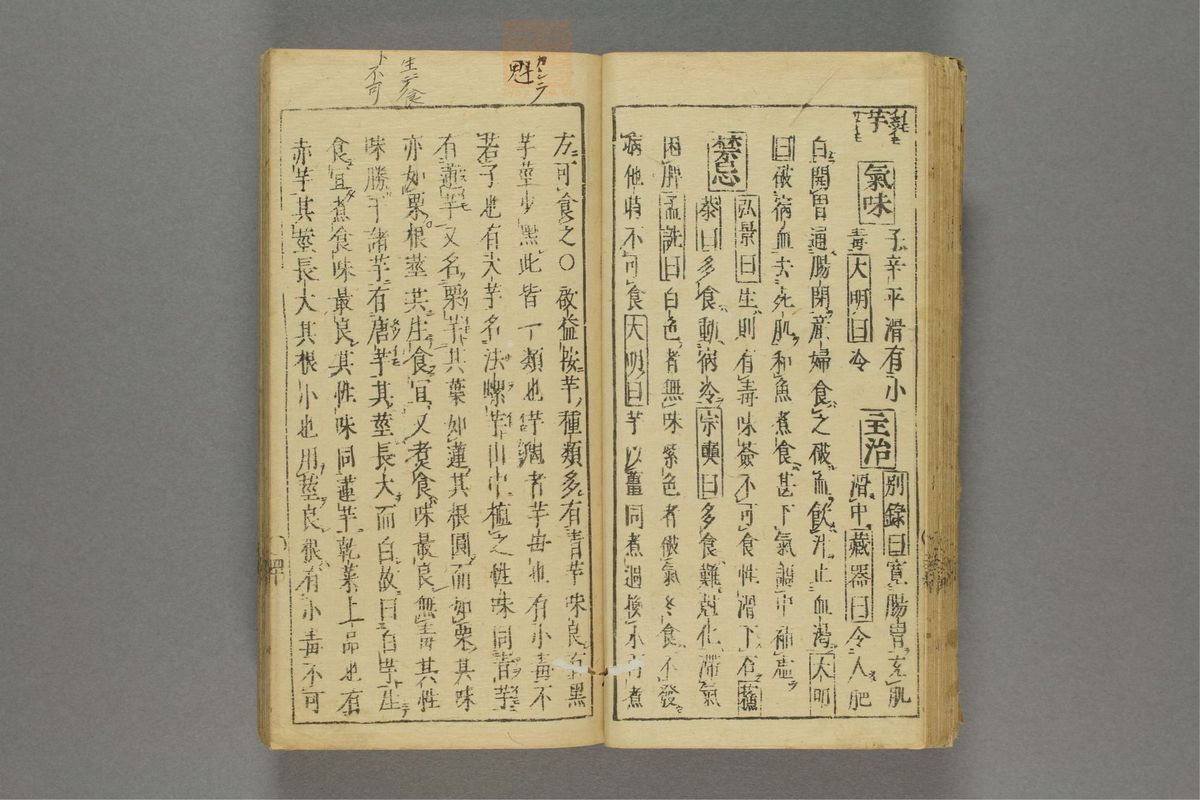 芋
氣味 子辛平滑有小
毒大明曰冷
主治 別錄曰寬腸胃充肌
滑中藏器曰令人肥
白開胃通腸閉產婦食之破血飲汁止血渴大明
曰破宿血去死肌和魚煮食甚下氣調中補虛
禁忌 弘景曰生則有毒味莶不可食性滑下石
恭曰多食動宿冷宗奭曰多食難尅化滯氣
困脾孟詵曰白色者無味紫色者破氣冬食不發
病他時不可食大明曰芋以薑同煮過換水再煮
方可食之〇啟益按芋種類多有青芋味良有黑
芋莖少黑此皆一類也芋魁者芋母也有小毒不
若子也有大芋名法螺芋山中植之性味同青芋
有蓮芋又名栗芋其葉如蓮其根圓而如栗其味
亦如栗根莖共生食宜又煮食味最良無毒其性
味勝于諸芋有唐芋其莖長大而白故曰白芋生
食宜煮食味最良其性味同蓮芋乾葉上品也有
赤芋其莖長大其根小也用莖良根有小毒不可
魁 カシラ
生デ食
ト不可